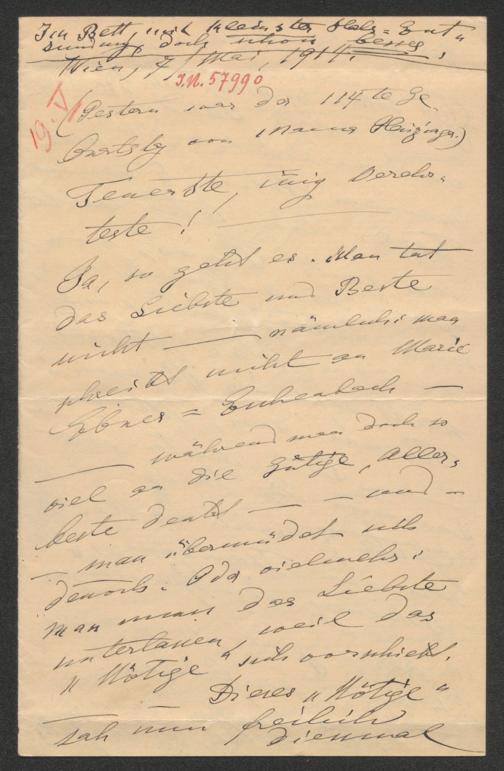 Im Bett mit kleinster Hals-Ent-
zündung, doch schon besser.
Wien, 7/ Mai, 1911.
I.N. 57990
19.V
(Gestern war der 114te Ge-
burtstg von Mamas
Teuerste, innig Verehr-
teste!
Ja, so geht es. Man tut
das Liebste und Beste
nicht — nämlich: man
schreibt nicht an Marie
Ebner=Eschenbach —
— während man doch so
viel an die Gütige, Aller-
beste denkt — — und —
— man übermüdet sich
dennoch. Oder vielmehr:
man muss das Liebste
unterlassen, weil das
"Nötige" sich vorschiebt.
Dieses "Nötige"
sah nun freilich
diesmal